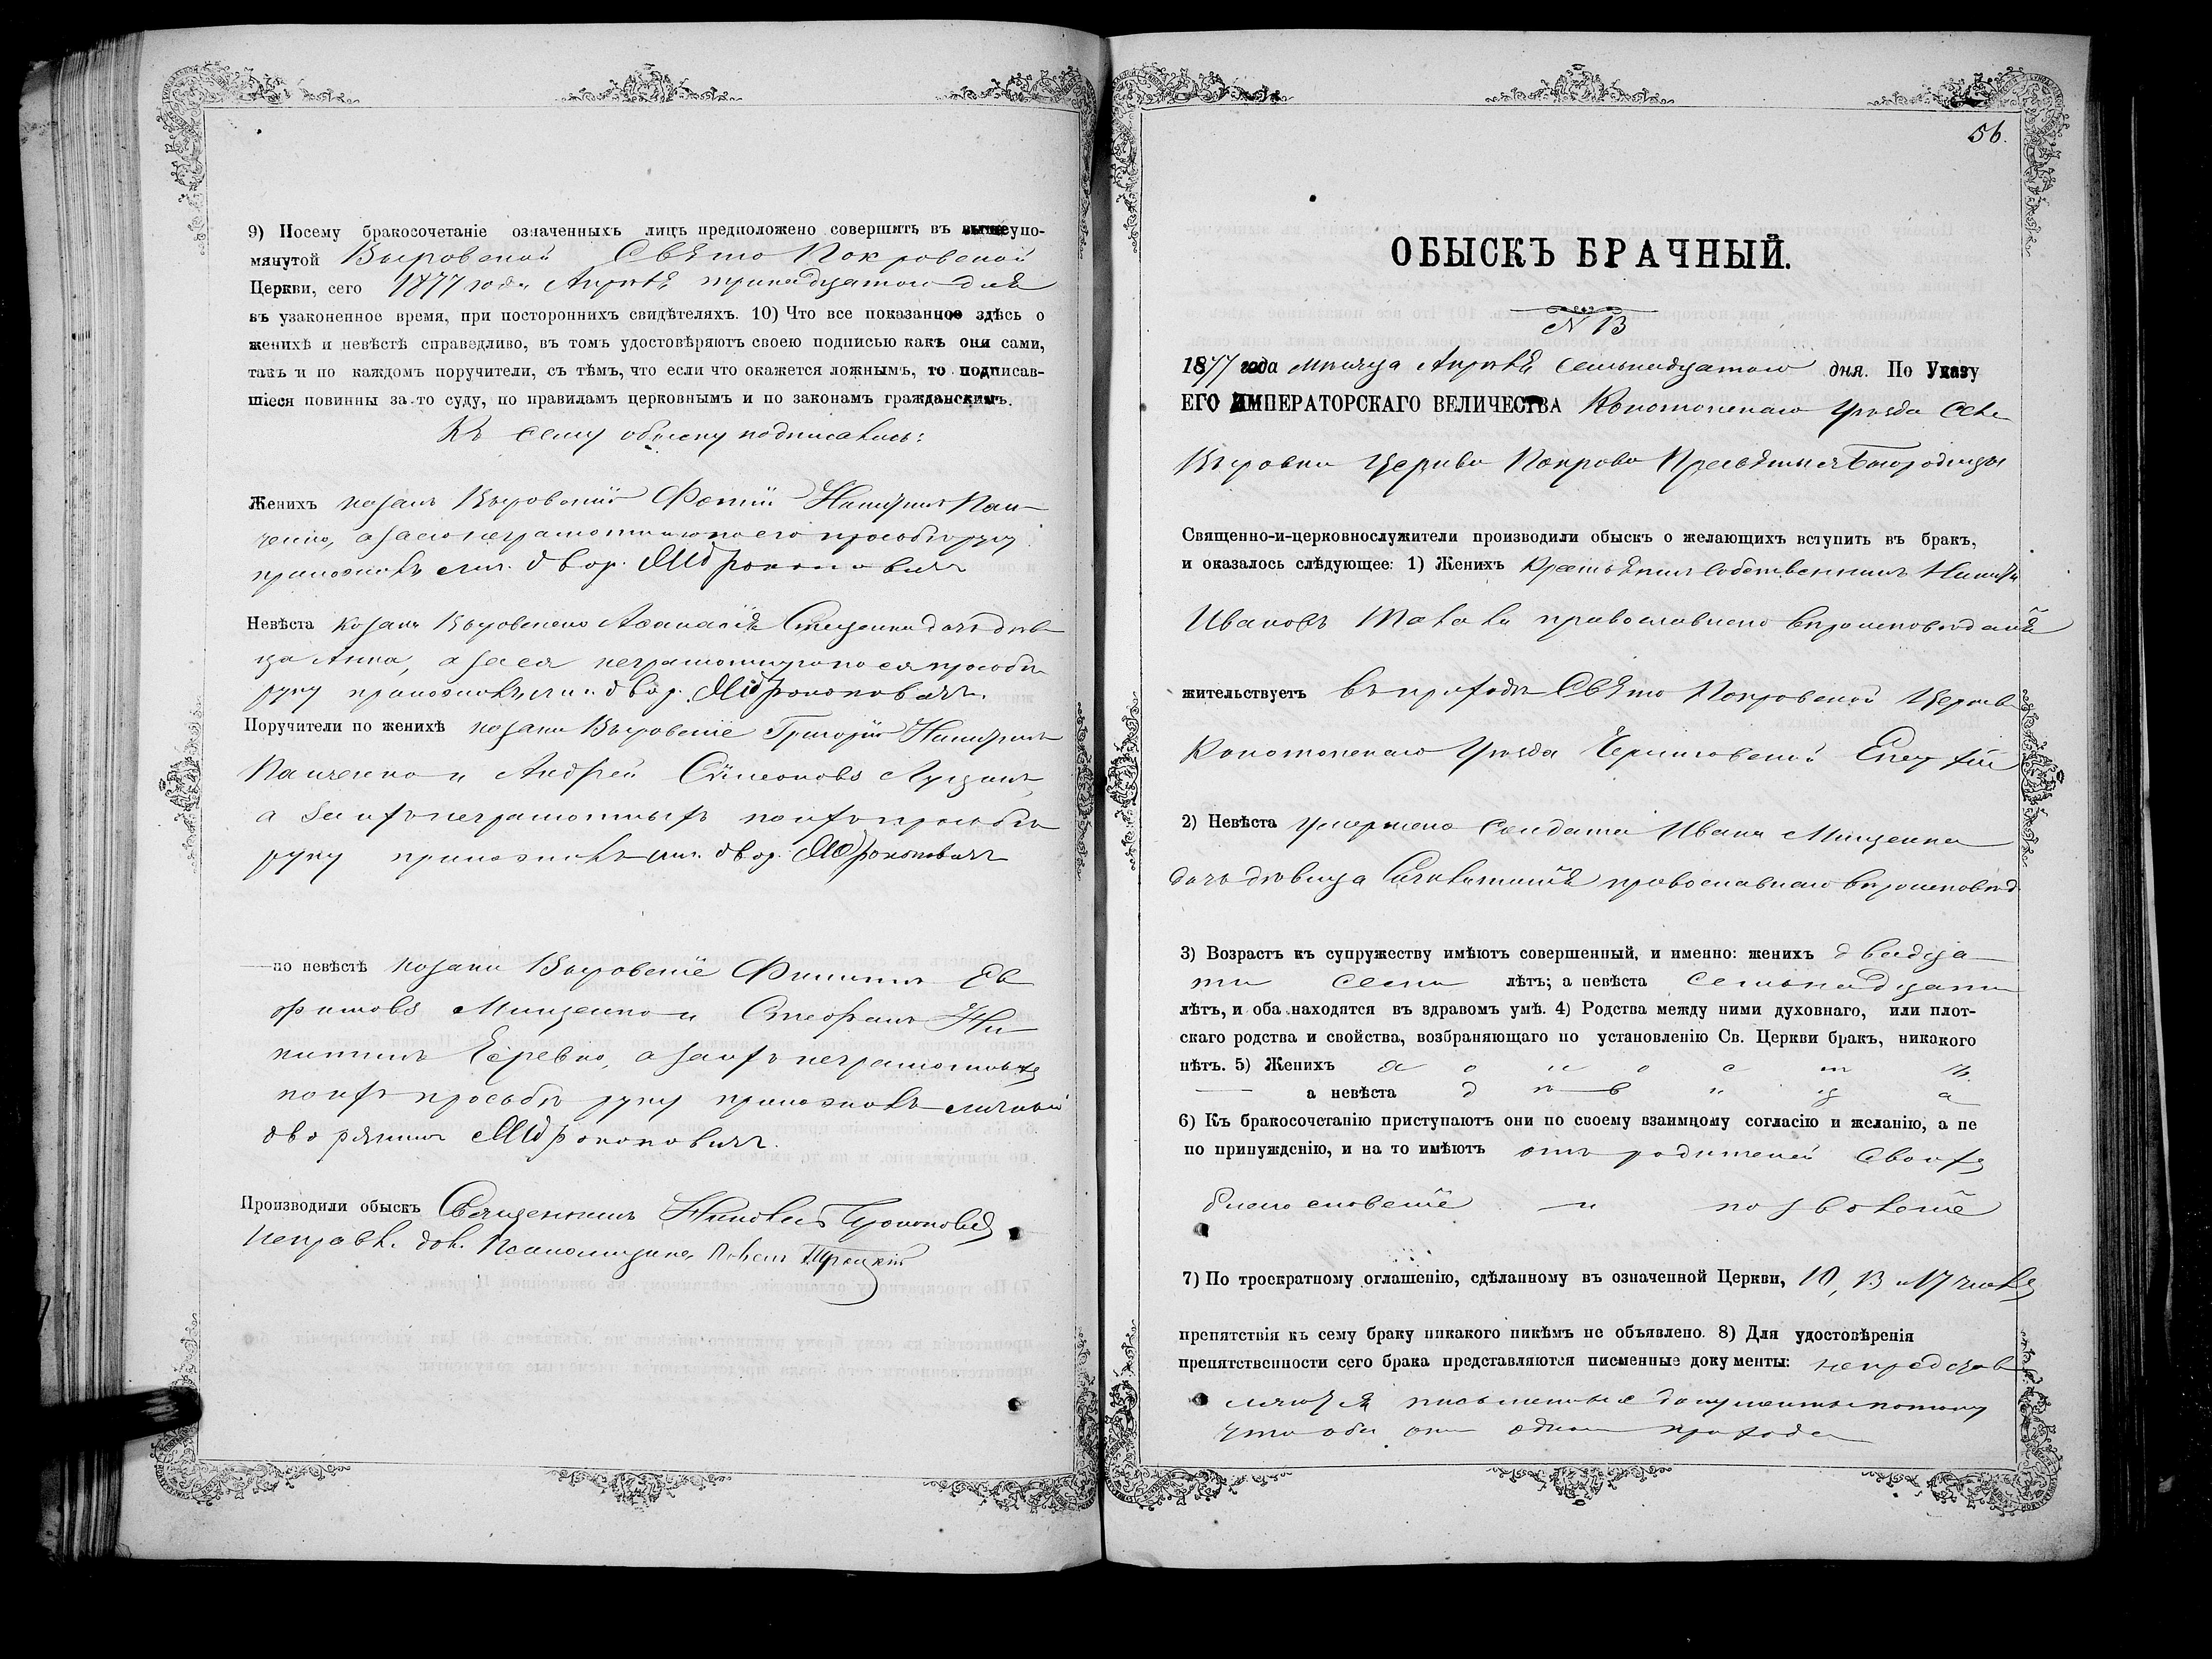 9) Посему бракосочетаніе означенныхъ лицъ предположено совершить въ вышеупо-
мянутой Выровской Свято Покровской
Церкви, сего 1877 года Апрѣля тринадцатого дня
въ узаконенное время, при постороннихъ свидѣтеляхъ. 10) Что все показанное здѣсь о
женихѣ и невѣстѣ справедливо, въ томъ удостовѣряютъ своею подписью какъ они сами,
такъ и по каждомъ поручители, съ тѣмъ, что если что окажется ложнымъ, то подписав-
шіеся повинны за то суду, по правиламъ церковнымъ и по законамъ гражданскимъ.
Къ сему обыску подписались:
Женихъ козакъ Выровскій Фотій Никитинъ Пан-
ченко, а за его неграмотностію по его прозьбѣ руку
приложилъ лич. двор. Прокоповичъ
Невѣста козака Выровского Афанасія Стеценка дочь дѣви-
ца Анна, а за ея неграмотную по ея прозбѣ
руку приложилъ лич. двор. Прокоповичъ.
Поручители по женихѣ козаки Выровскіе Григорій Никитинъ
Панченко и Андрей Симеоновъ Луценко,
а за ихъ неграмотныхъ по ихъ прозьбѣ
руку приложилъ лич. двор. Прокоповичъ
по невѣстѣ козаки Выровскіе Филиппъ Ев
фимовъ Мищенко и Стефанъ Ни
китинъ, а за ихъ неграмотныхъ
по ихъ просьбѣ руку приложилъ личный
дворянинъ Прокоповичъ.
Производили обыскъ Священникъ Николай
Исправл. дол. Псаломщика Троцкій
56.
ОБЫСКЪ БРАЧНЫЙ.
N 13
1877 года мѣсяца Апрѣля семьнадцатого дня. По Указу
ЕГО ИМПЕРАТОРСКАГО ВЕЛИЧЕСТВА Конотопскаго Уѣзда села
Выровки Церкви Покрова Пресвятыя Богородицы
Священно-и-церковнослужители производили обыскъ о желающихъ вступить въ бракъ,
и оказалось слѣдующее: 1) Женихъ Крестьянинъ Собственникъ Никита
Ивановъ православного вѣроисповѣданія
жительствуетъ въ приходѣ Свято Покровской Церкви
Конотопскаго Уѣзда Черниговской Епархіи
2) Невѣста умершего солдата Ивана Мищенка
дочь дѣвица православнаго вѣроисповѣд
3) Возрастъ къ супружеству имѣютъ совершенный, и именно: женихъ двадца
ти семи лѣтъ; а невѣста семьнадцати
лѣтъ, и оба находятся въ здравомъ умѣ. 4) Родства между ними духовнаго, или плот-
скаго родства и свойства, возбраняющаго по установленію Св. Церкви бракъ, никакого
нѣтъ. 5) Женихъ холостъ
а невѣста дѣвица
6) Къ бракосочетанію приступаютъ они по своему взаимному согласію и желанію, а не
по принужденію, и на то имѣютъ отъ родителей своихъ
благословеніе и позволеніе
7) По троекратному оглашенію, сдѣланному въ означенной Церкви, 10, 13 и 17 числа
препятствія къ сему браку никакого никѣмъ не объявлено. 8) Для удостовѣренія
препятственности сего брака представляются писменные документы: не представ
ляются письменные документы потому
что оба они одного прихода